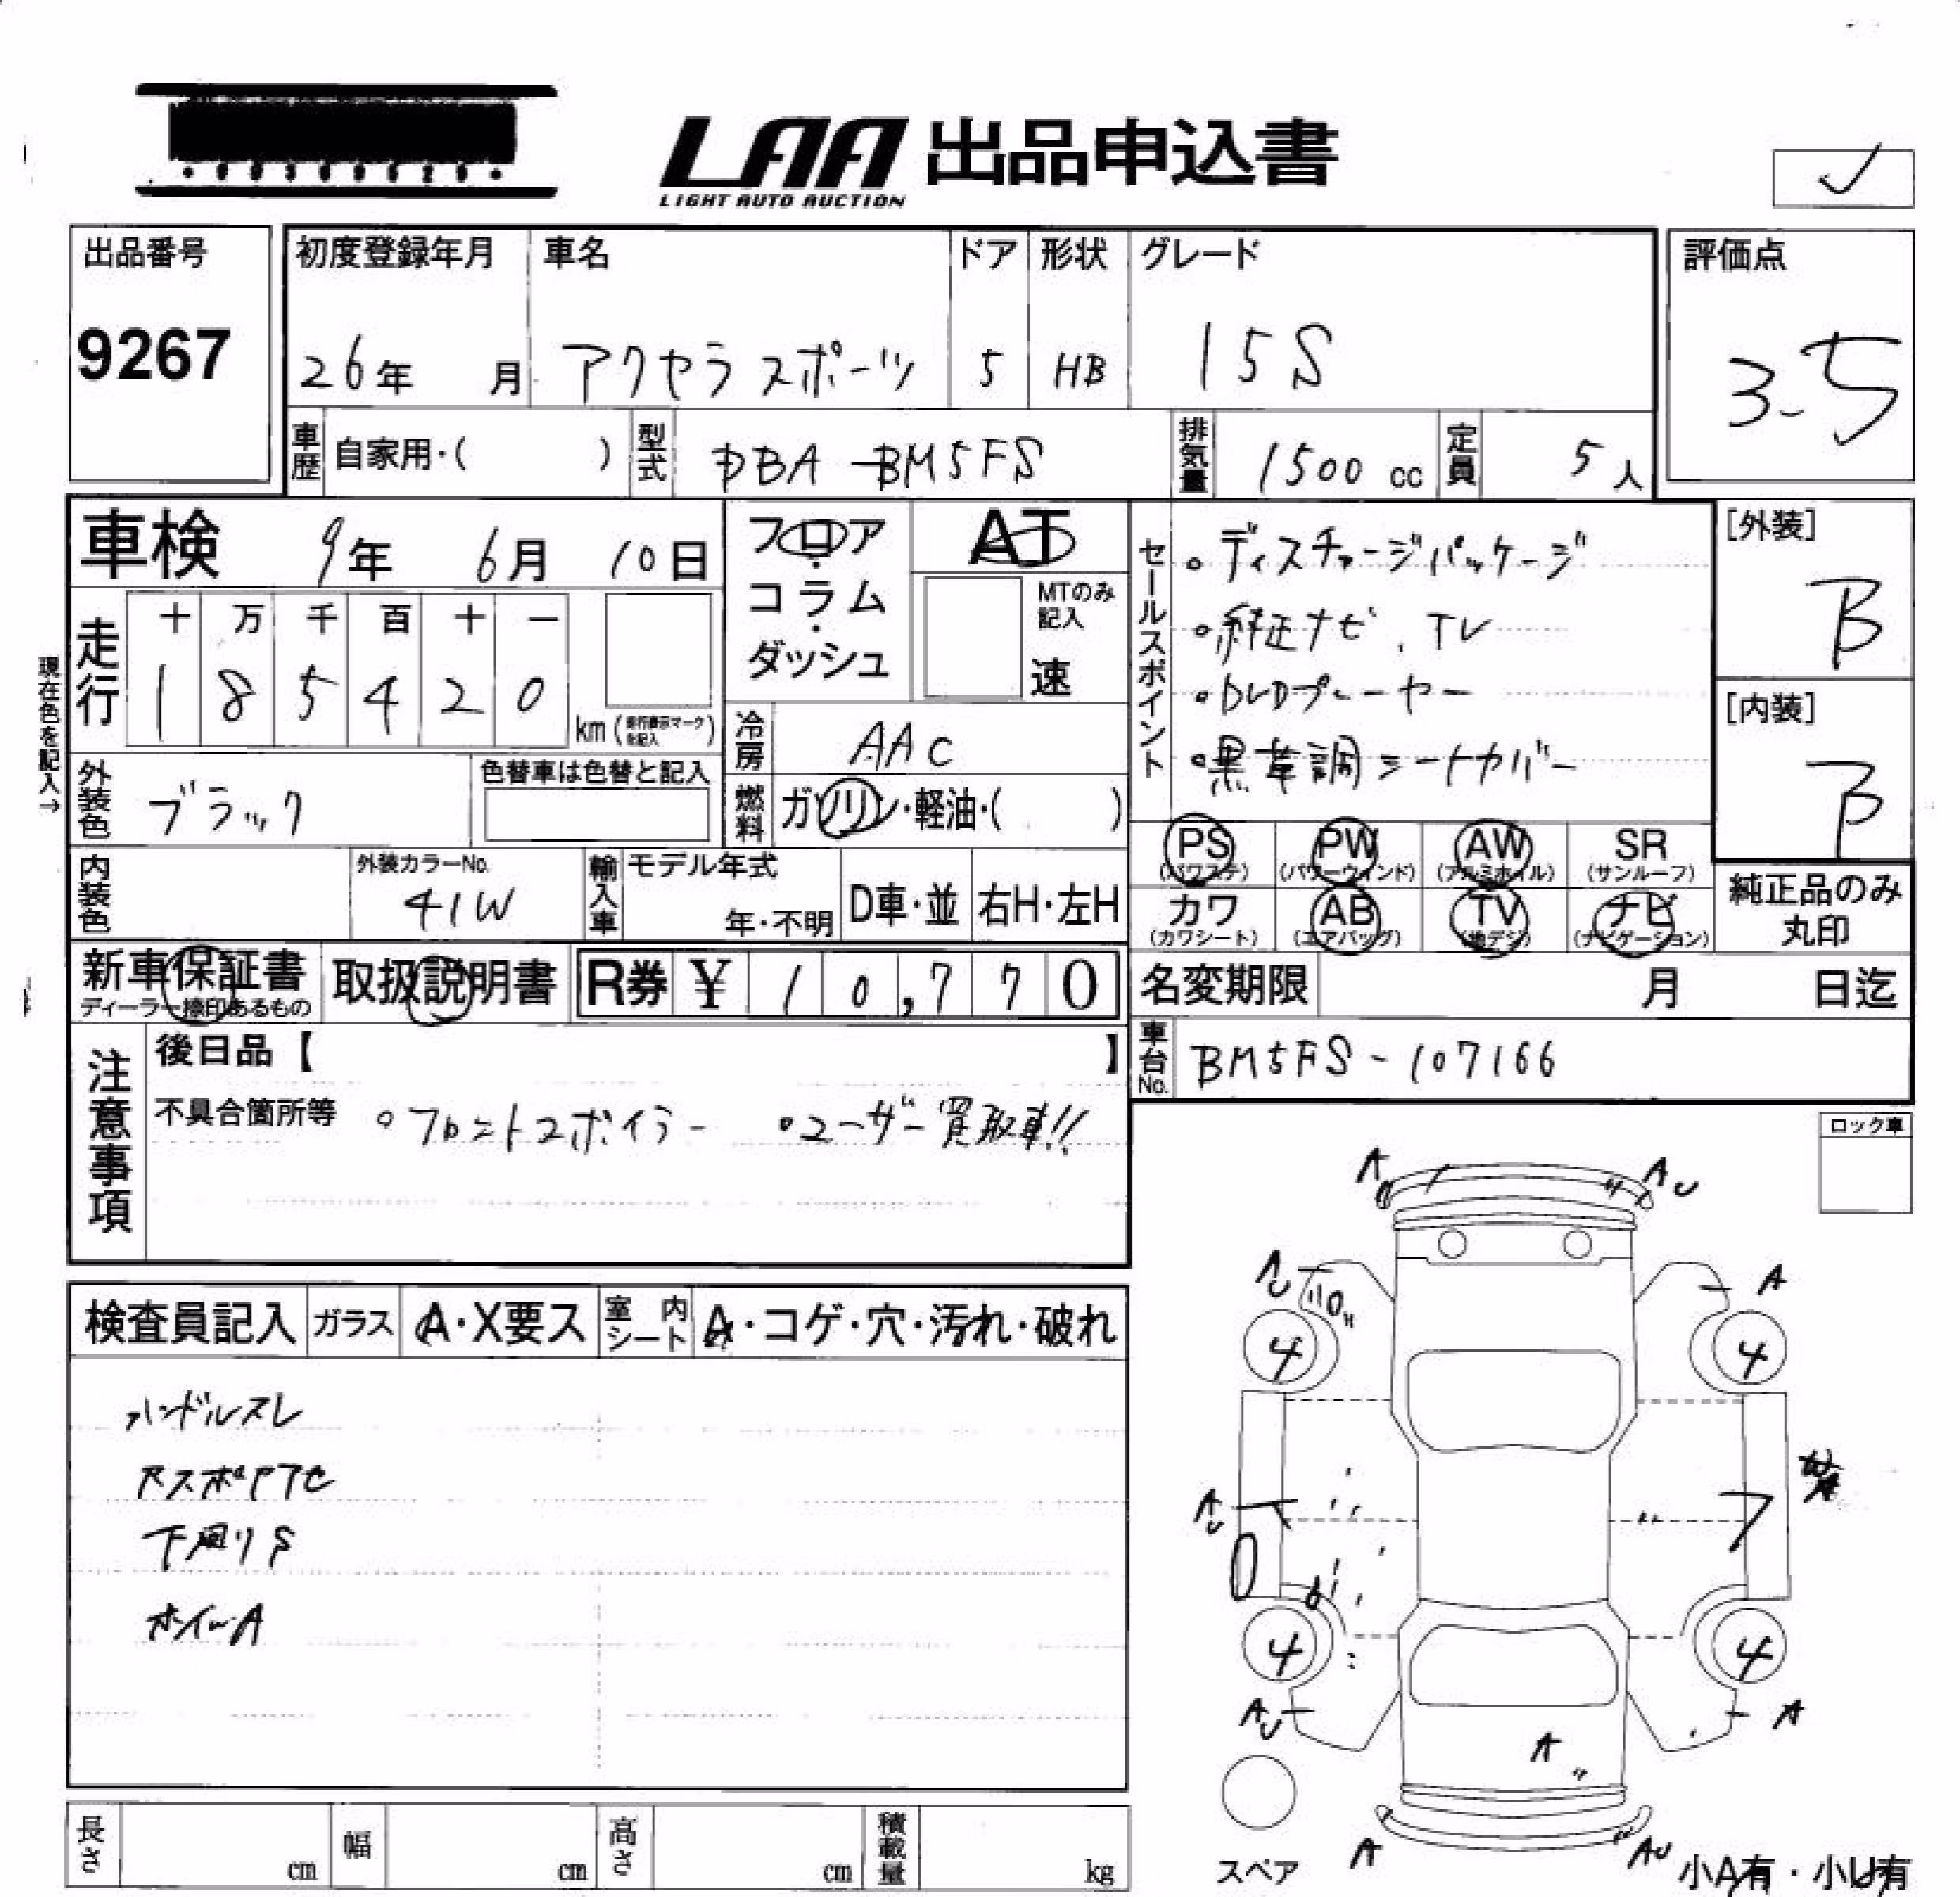 LAA 出品申込書
LIGHT AUTO AUCTION
✓
出品番号
9267
初度登録年月
26年 月
車名
アクセラスポーツ
ドア
5
形状
HB
グレード
15S
評価点
3.5
車歴 自家用・( )
型式 DBA-BM5FS
排気量 1500 cc
定員 5人
車検 9年 6月 10日
フロア・コラム・ダッシュ
AT
MTのみ記入
速
セールスポイント
・ディスチャージパッケージ
・純正ナビ、TV
・DVDプレーヤー
・黒革調シートカバー
[外装]
B
[内装]
B
現在色を記入→
走行
十 万 千 百 十 一
1 8 5 4 2 0
km
冷房 AAC
外装色 ブラック
色替車は色替と記入
燃料 ガソリン・軽油・( )
PS (パワステ)
PW (パワーウィンド)
AW (アルミホイル)
SR (サンルーフ)
カワ (カワシート)
AB (エアバッグ)
TV (地デジ)
ナビ (ナビゲーション)
純正品のみ丸印
内装色
外装カラーNo.
41W
輸入車
モデル年式
年・不明
D車・並
右H・左H
新車保証書
ディーラー捺印あるもの
取扱説明書
R券 ¥ 10,770
名変期限 月 日迄
注意事項
後日品【 】
車台No. BM5FS-107166
不具合箇所等 ・フロントスポイラー ・ユーザー買取車!!
ロック車
検査員記入
ガラス
A・X要ス
室内シート
A・コゲ・穴・汚れ・破れ
ハンドルスレ
下周りS
ホイルA
A
AU
AU
A
4
4
AU
4
4
AU
A
A
A
AU
スペア
小A有・小U有
長さ cm
幅 cm
高さ cm
積載量 kg